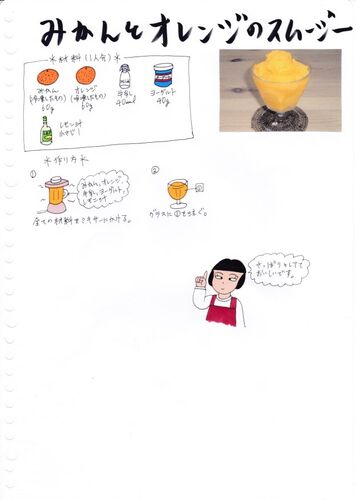 みかんとオレンジのスムージー
＊材料(1人分)＊
みかん
(冷凍したもの)
60g
オレンジ
(冷凍したもの)
60g
牛乳
40ml
ヨーグルト
40g
レモン汁
小さじ1
＊作り方＊
①
みかん、オレンジ、
牛乳、ヨーグルト、
レモン汁
全ての材料をミキサーにかける。
②
グラスに①をそそぐ。
さっぱりしてて
おいしいです。